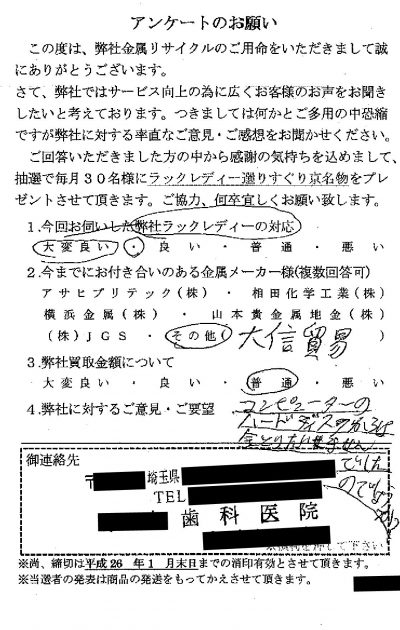 アンケートのお願い
この度は、弊社金属リサイクルのご用命をいただきまして誠
にありがとうございます。
さて、弊社ではサービス向上の為に広くお客様のお声をお聞き
したいと考えております。つきましては何かとご多用の中恐縮
ですが弊社に対する率直なご意見・ご感想をお聞かせください。
ご回答いただきました方の中から感謝の気持ちを込めまして、
抽選で毎月30名様にラックレディー選りすぐり京名物をプレ
ゼントさせて頂きます。ご協力、何卒宜しくお願い致します。
1.今回お伺いした弊社ラックレディーの対応
大変良い ・ 良い ・ 普通 ・ 悪い
2.今までにお付き合いのある金属メーカー様(複数回答可)
アサヒプリテック(株) ・ 相田化学工業(株)
横浜金属(株) ・ 山本貴金属地金(株)
(株)JGS ・ その他( 大信貿易 )
3.弊社買取金額について
大変良い ・ 良い ・ 普通 ・ 悪い
4.弊社に対するご意見・ご要望
コンピューターの
ハードディスクからは
金とりだせません
でした
のでしょうか
御連絡先
〒 埼玉県
TEL
歯科医院
※尚、締切は平成26年1月末日までの消印有効とさせて頂きます。
※当選者の発表は商品の発送をもってかえさせて頂きます。